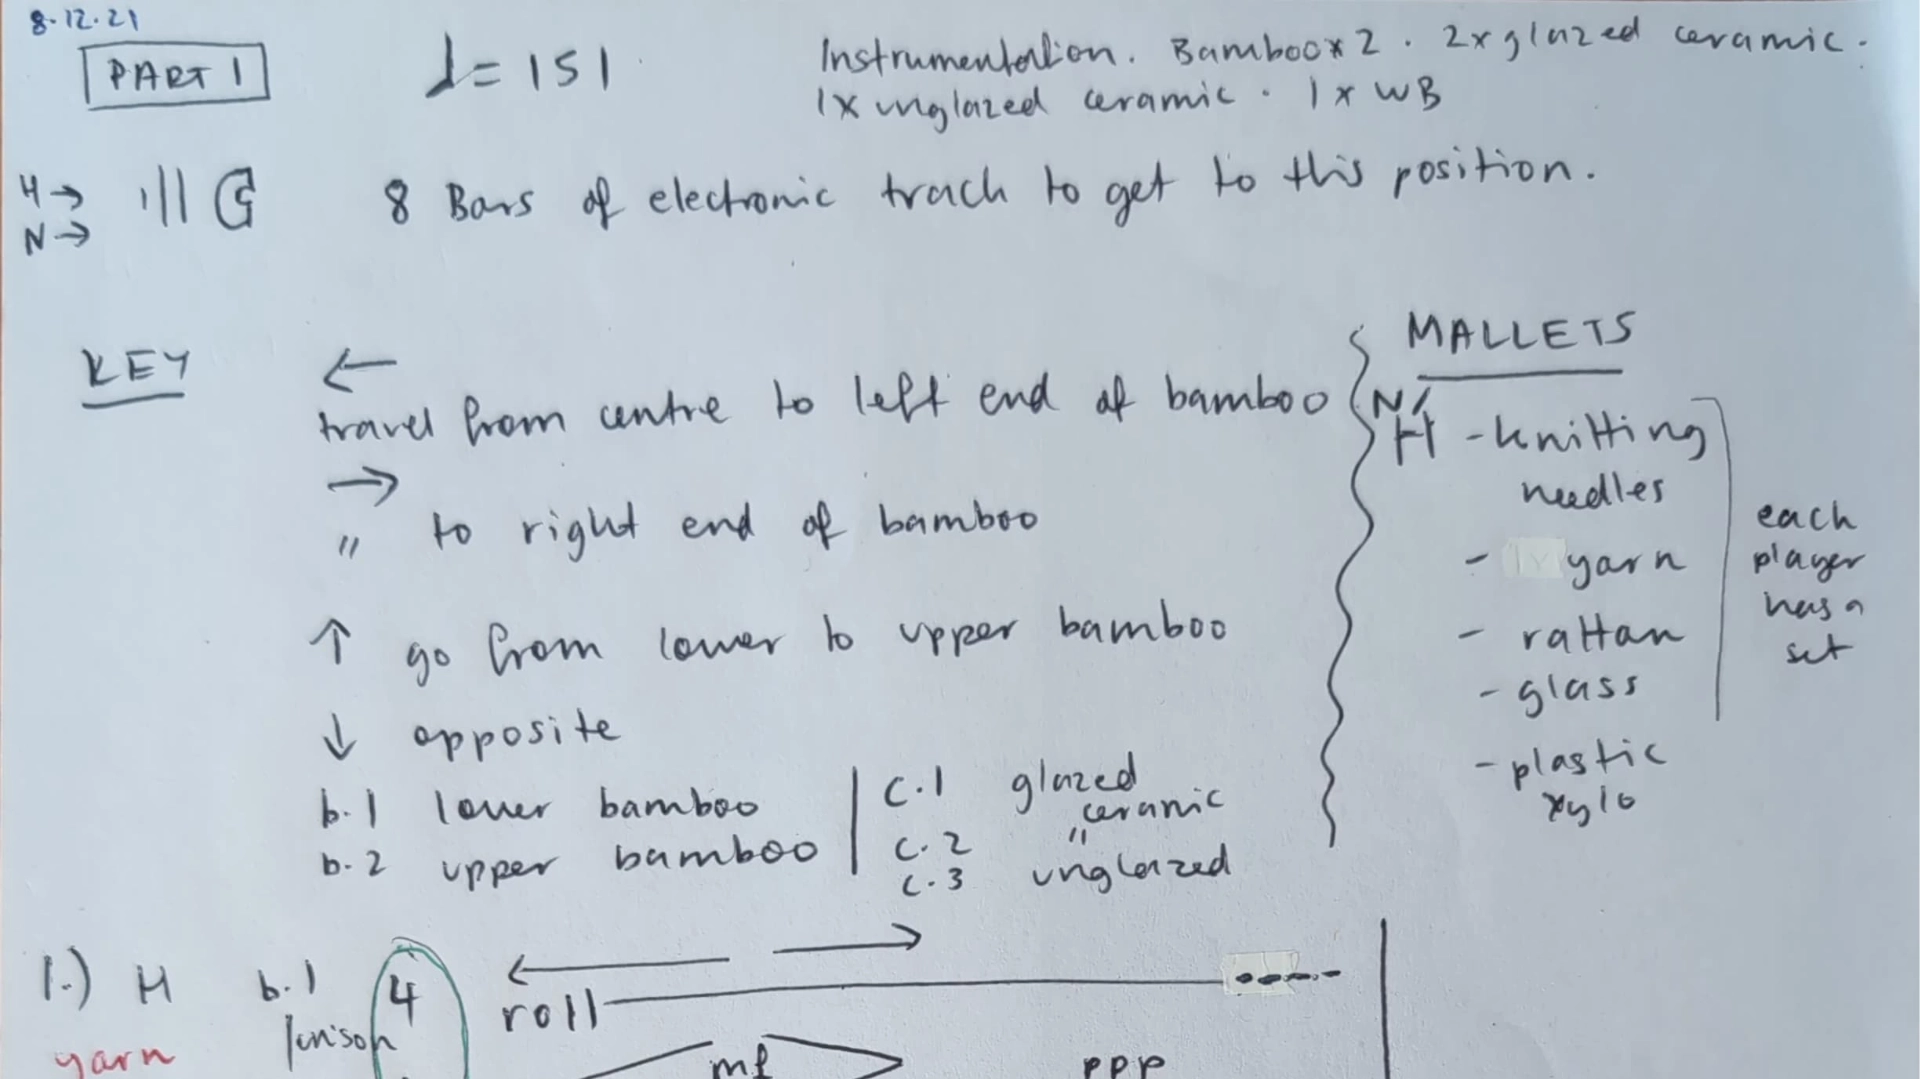 8.12.21
PART 1
♩=151
Instrumentation. Bamboo x 2 . 2x glazed ceramic .
1x unglazed ceramic . 1 x WB
H →
N →
8 Bars of electronic track to get to this position.
KEY
←
travel from centre to left end of bamboo
→
" to right end of bamboo
↑ go from lower to upper bamboo
↓ opposite
b.1 lower bamboo
b.2 upper bamboo
c.1 glazed
ceramic
c.2 "
c.3 unglazed
MALLETS
N/
H - knitting
needles
- yarn
- rattan
- glass
- plastic
xylo
each
player
has a
set
1.) H b.1 4 roll
/unison
yarn mf ppp